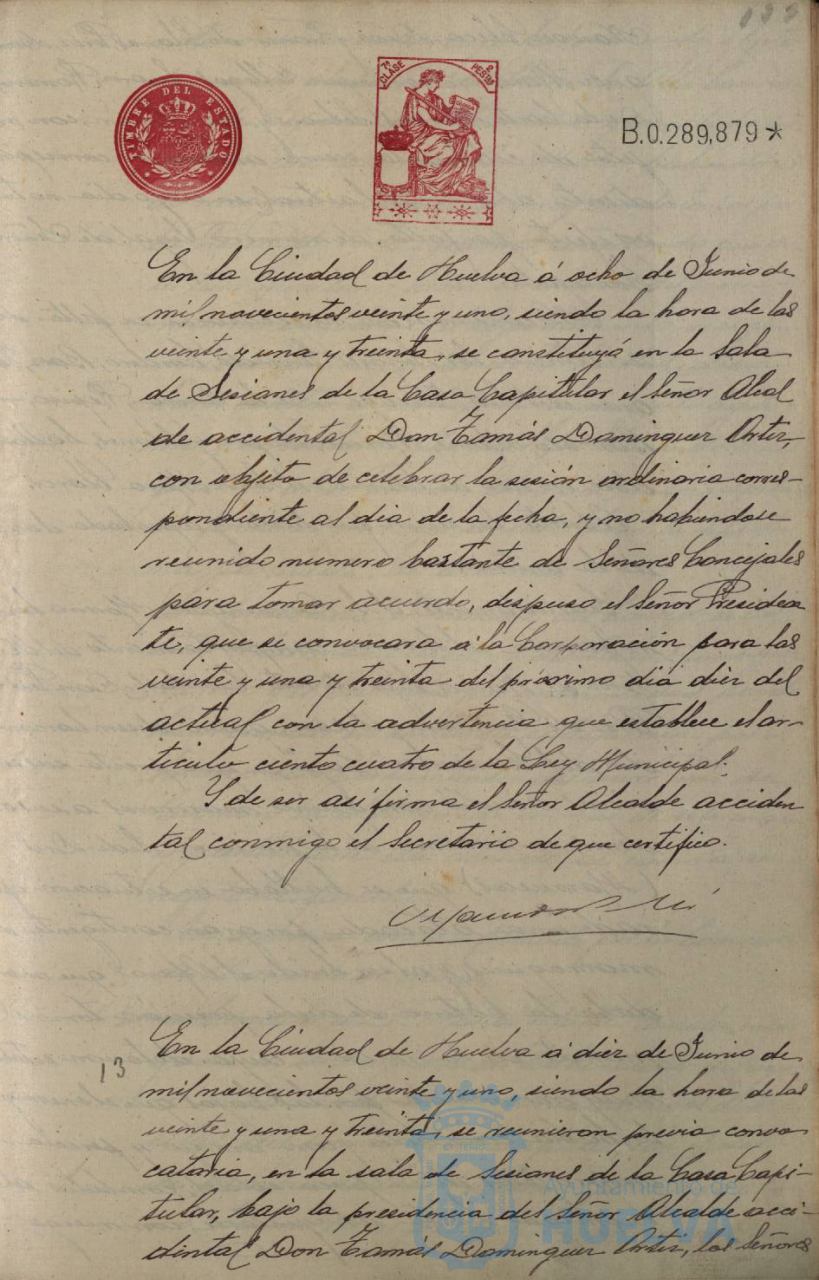 TIMBRE DEL ESTADO
7ª CLASE 2 PESTAS
B.0.289,879*
En la Ciudad de Huelva á ocho de Junio de
mil novecientos veinte y uno, siendo la hora de las
veinte y una y treinta, se constituyó en la Sala
de Sesiones de la Casa Capitular el Señor Alcal
de accidental Don Tomás Dominguez Ortiz,
con objeto de celebrar la sesión ordinaria corres-
pondiente al dia de la fecha, y no habiendose
reunido numero bastante de Señores Concejales
para tomar acuerdo, dispuso el Señor Presiden
te, que se convocara á la Corporación para las
veinte y una y treinta del próximo dia diez del
actual con la advertencia que establece el ar-
ticulo ciento cuatro de la Ley Municipal.
Y de ser asi firma el Señor Alcalde acciden
tal conmigo el Secretario de que certifico.
13
En la Ciudad de Huelva á diez de Junio de
mil novecientos veinte y uno, siendo la hora de las
veinte y una y treinta, se reunieron previa convo
catoria, en la sala de Sesiones de la Casa Capi-
tular, bajo la presidencia del Señor Alcalde acci-
dental Don Tomás Dominguez Ortiz, los Señores
Ayuntamiento de
HUELVA